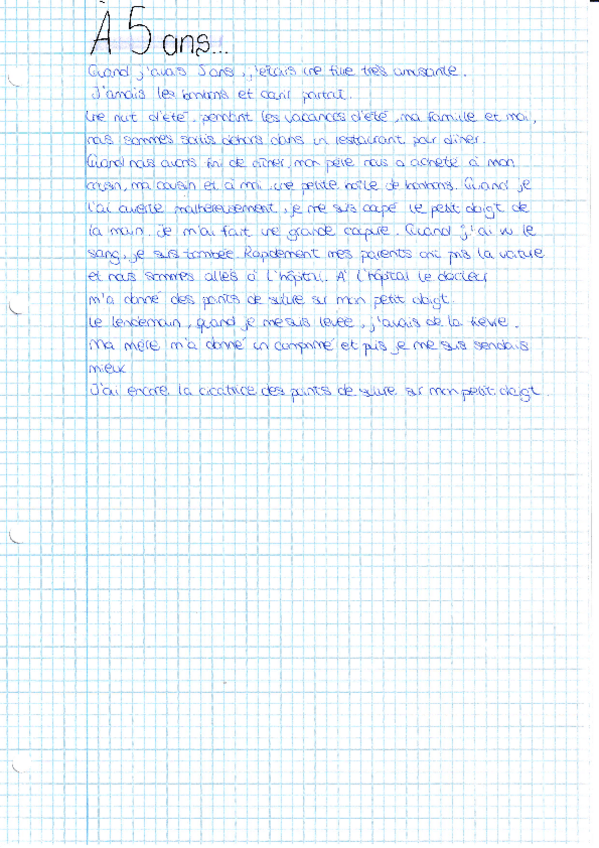 À 5 ans...
Quand j'avais 5 ans, j'étais une fille très amusante.
J'amais les bonbons et courir partout.
Une nuit d'été, pendant les vacances d'été, ma famille et moi,
nous sommes sortis dehors dans un restaurant pour dîner.
Quand nous avons fini de dîner, mon père nous a acheté à mon
cousin, ma cousin et à moi, une petite boîte de bonbons. Quand je
l'ai ouverte malheureusement, je me suis coupé le petit doigt de
la main. Je m'ai fait une grande coupure. Quand j'ai vu le
sang, je suis tombée. Rapidement mes parents ont pris la voiture
et nous sommes allés à l'hôpital. À l'hôpital le docteur
m'a donné des points de suture sur mon petit doigt.
Le lendemain, quand je me suis levée, j'avais de la fièvre.
Ma mère m'a donné un comprimé et puis je me suis sendais
mieux
J'ai encore la cicatrice des points de suture sur mon petit doigt.